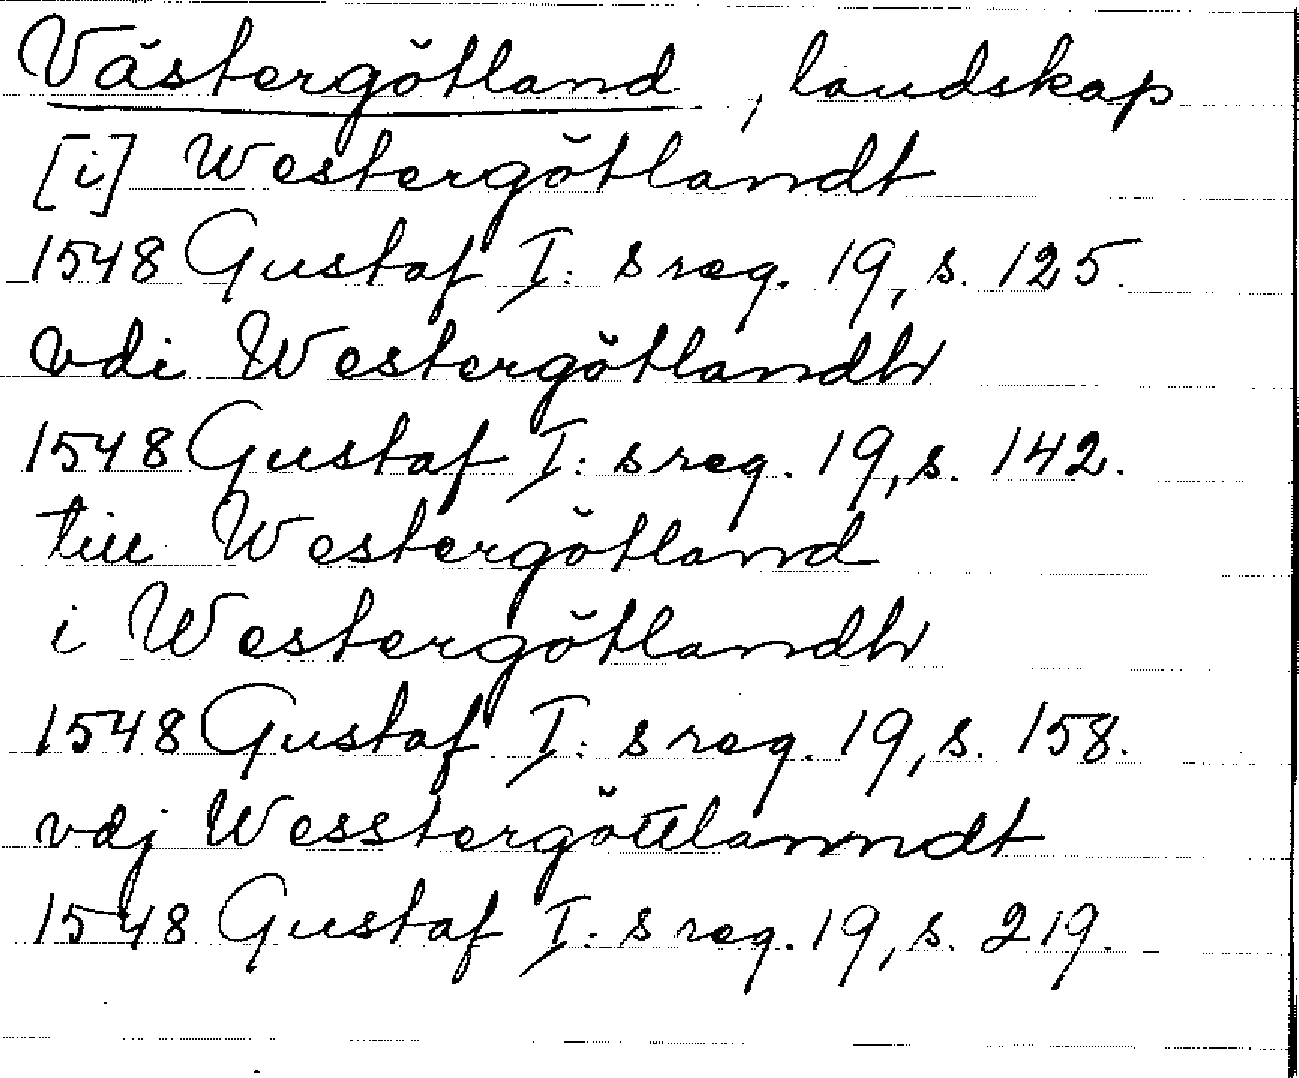 Västergötland, landskap
[i] Westergötlandt
1548 Gustaf I:s reg. 19, s. 125.
vdi Westergötlandh
1548 Gustaf I:s reg. 19, s. 142.
till Westergötland
i Westergötlandh
1548 Gustaf I:s reg. 19, s. 158.
vdj Wesstergöttlanndt
1548 Gustaf I:s reg. 19, s. 219.